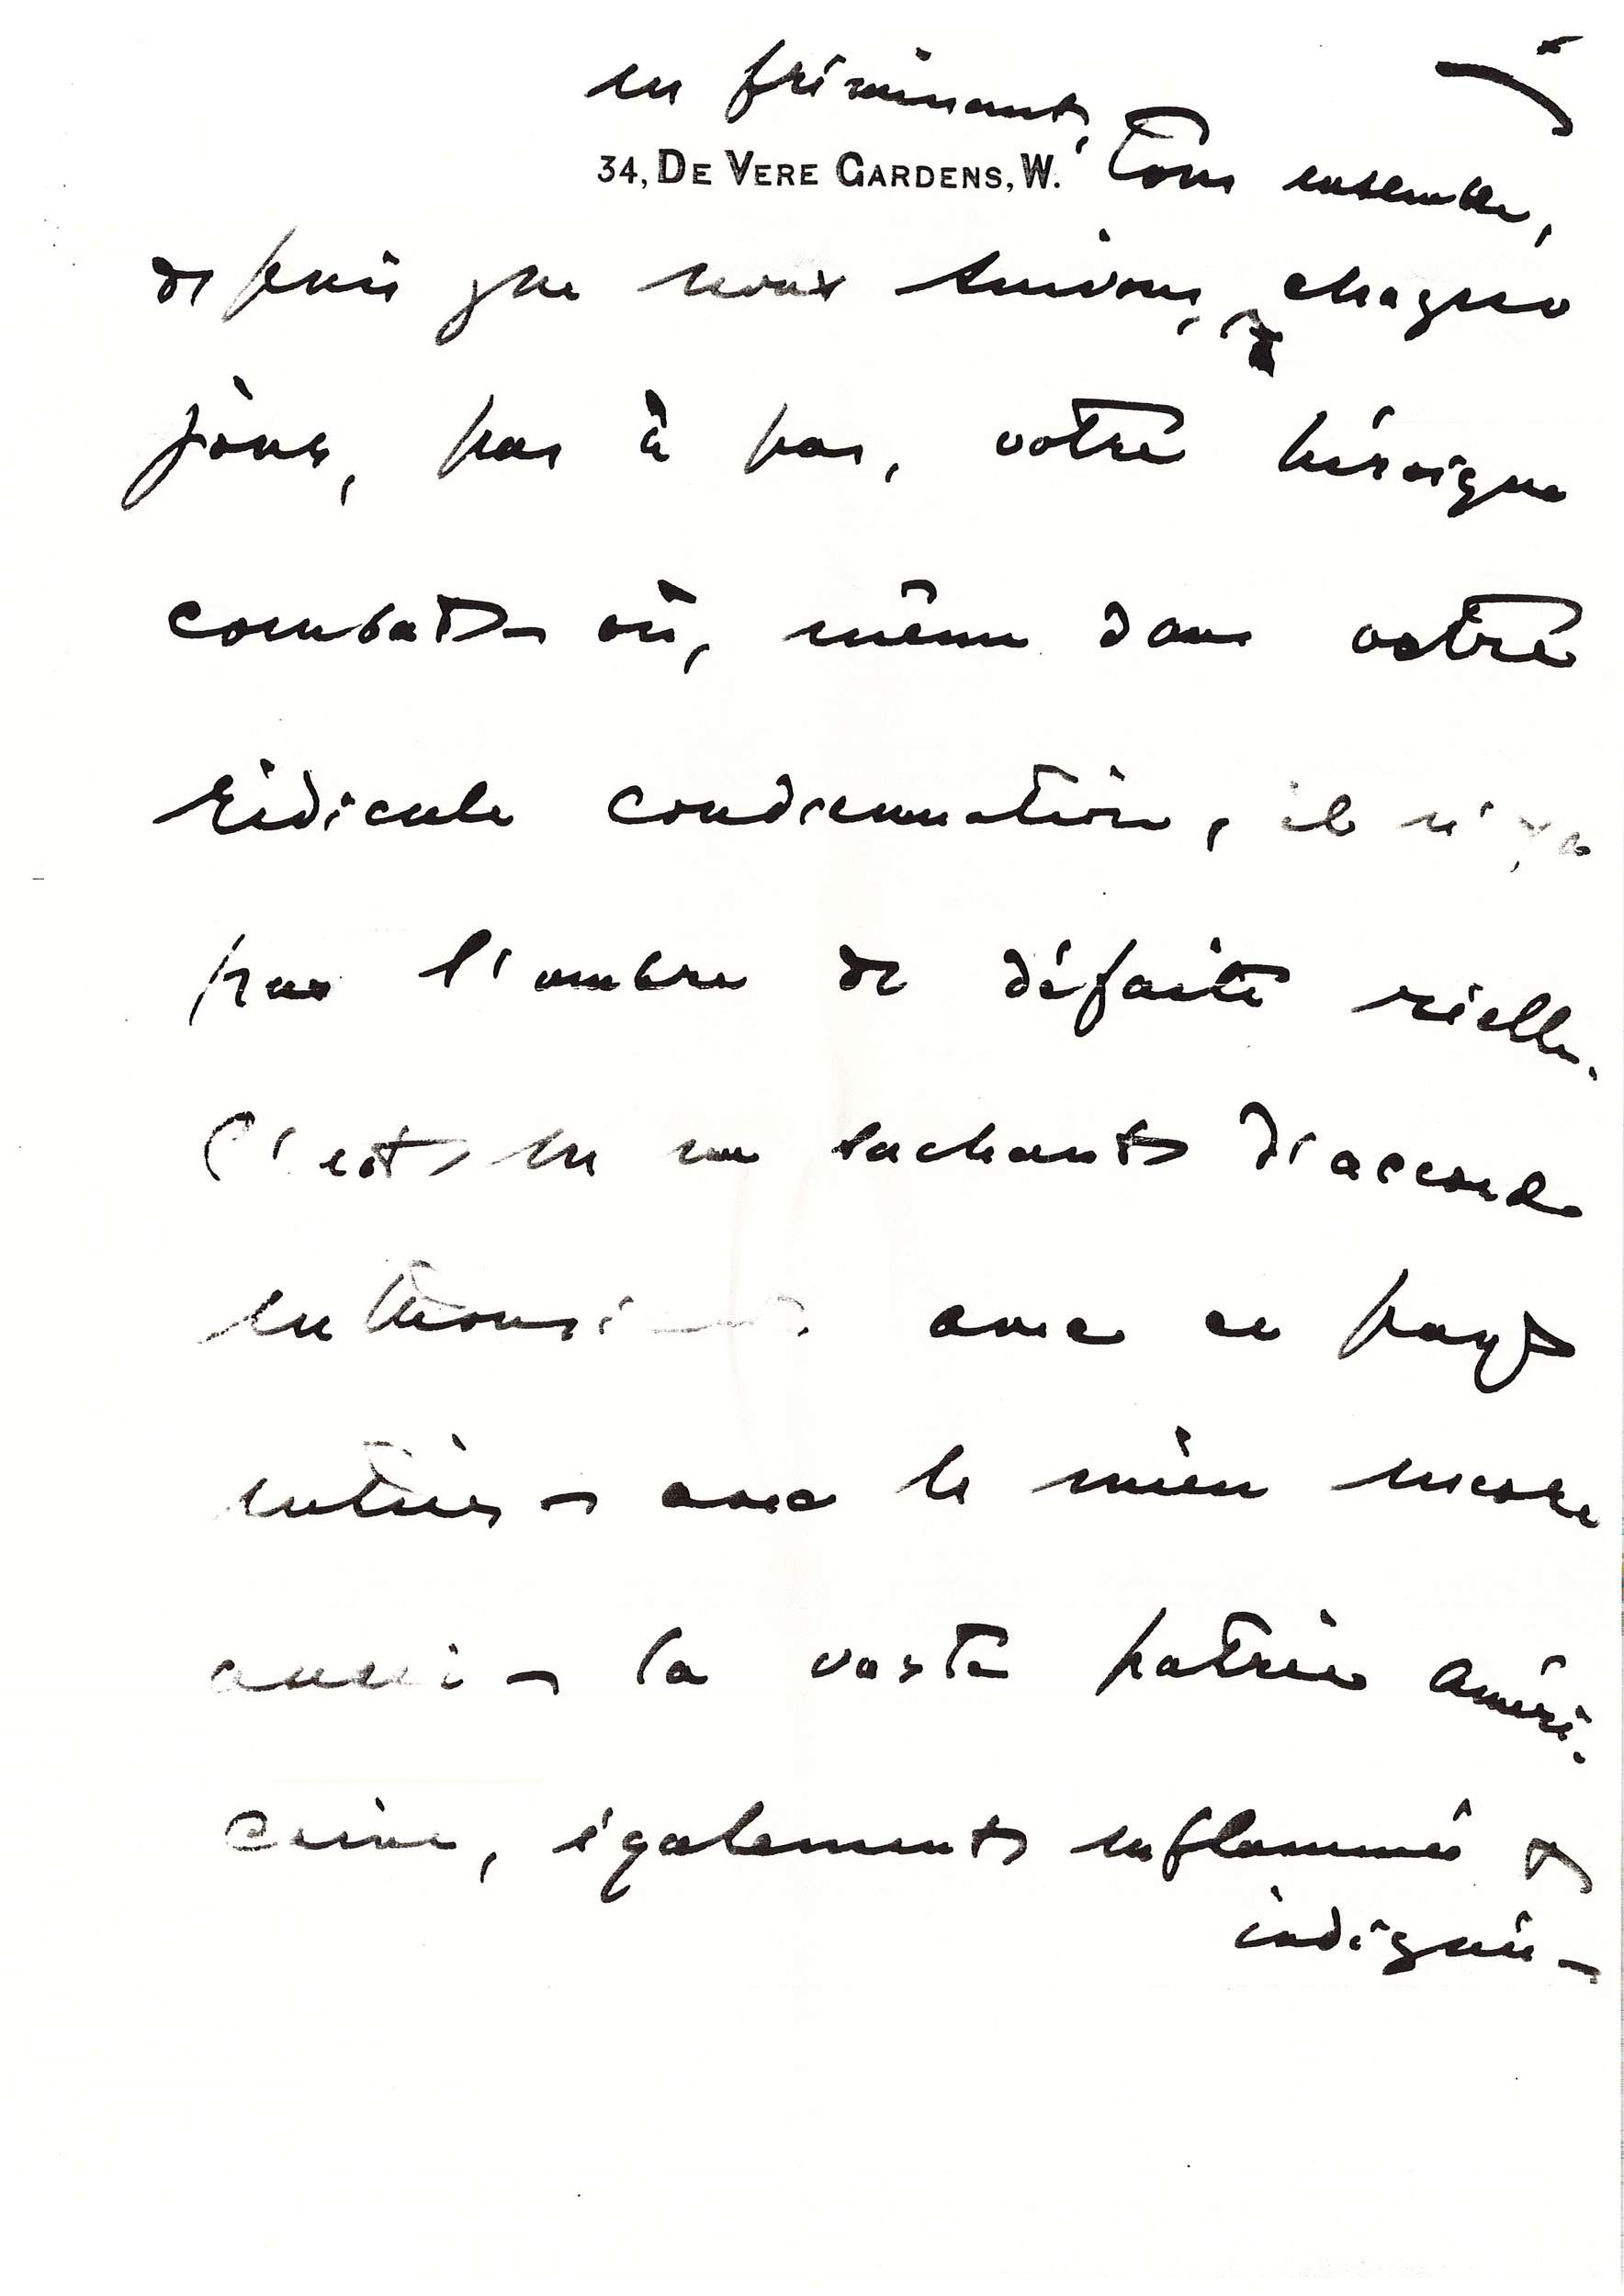 en frémissant, tous ensemble,
34, DE VERE GARDENS, W.
depuis que nous suivons, chaque
jour, pas à pas, votre héroïque
combat – où, même dans votre
ridicule condamnation, il n'y a
pas l'ombre de défaite réelle.
C'est en me sachant d'accord
avec ce pays
entier – avec le mien encore
aussi – la vaste patrie améri-
caine, également enflammée &
indignée –